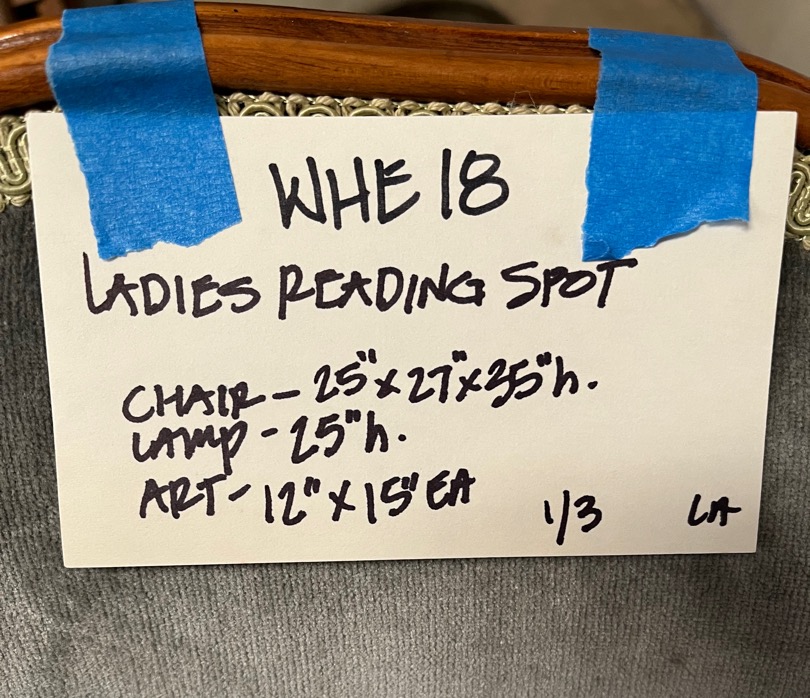 WHE 18
LADIES READING SPOT
CHAIR - 25" x 27" x 35" h.
LAMP - 25" h.
ART - 12" x 15" EA
1/3 LA